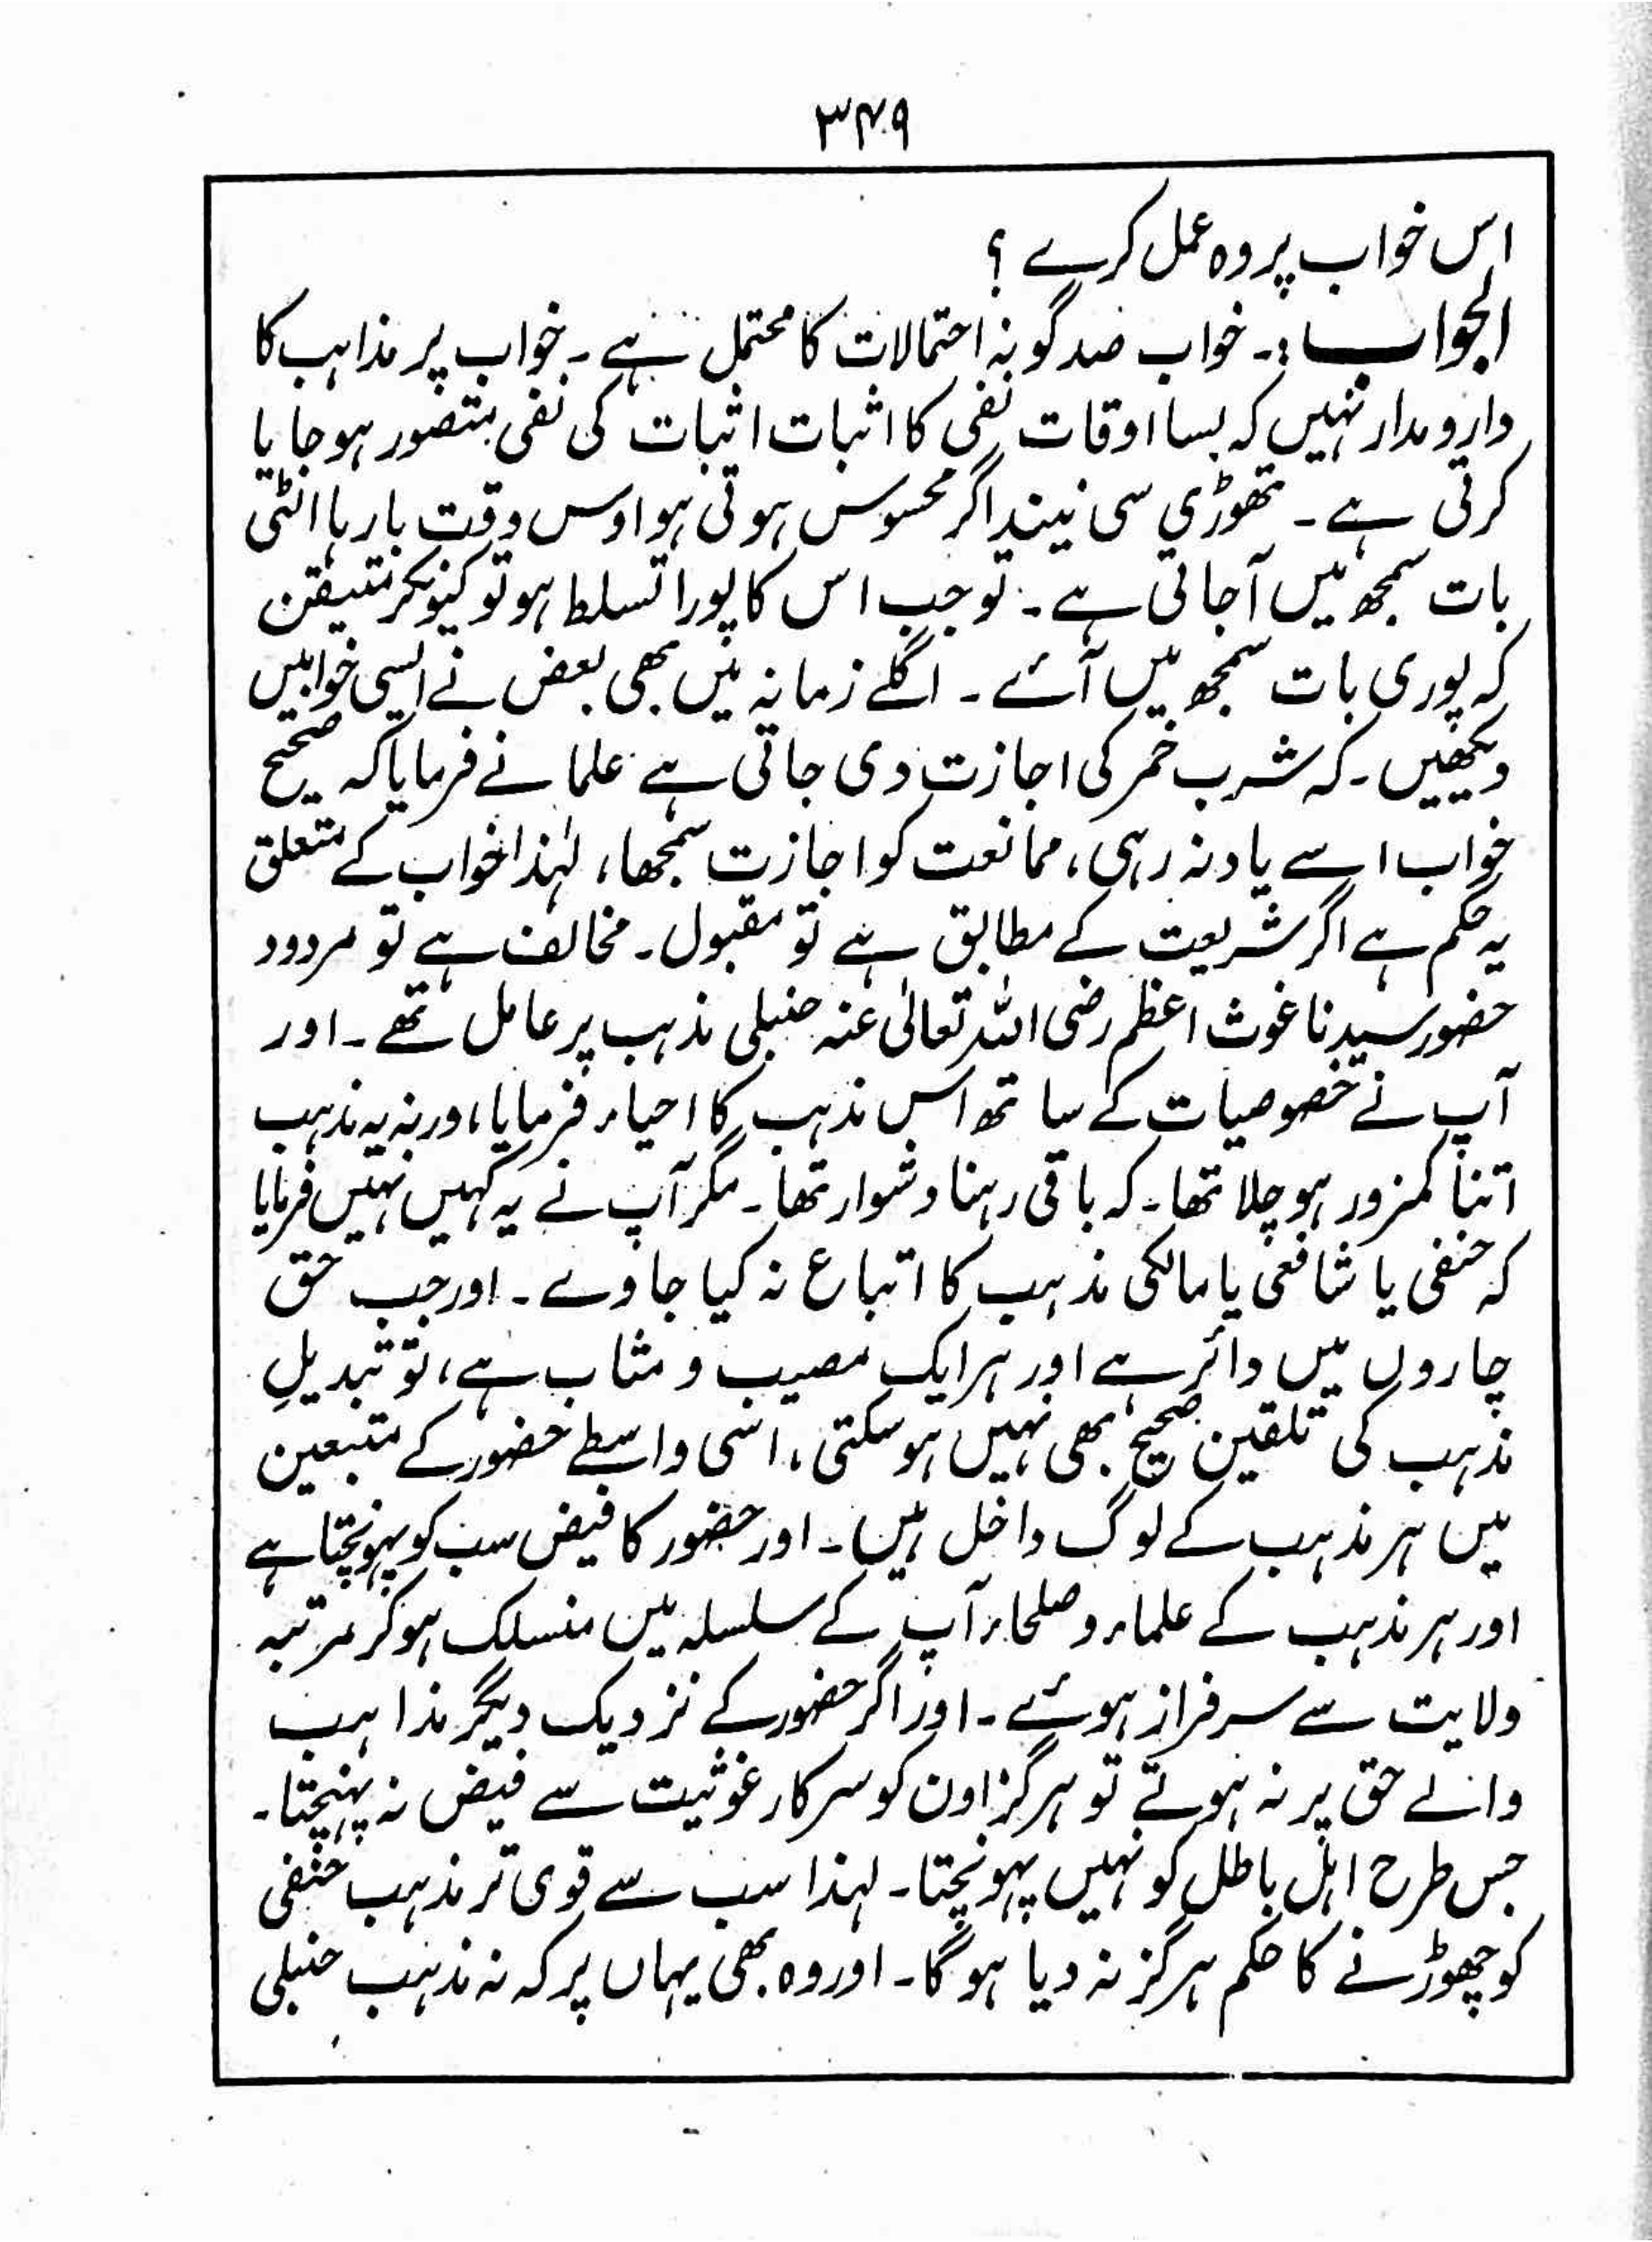 ۳۴۹
اس خواب پر وہ عمل کرے ؟
الجواب :۔ خواب صد گونہ احتمالات کا محتمل ہے ۔ خواب پر مذاہب کا
دار و مدار نہیں کہ بسا اوقات نفی کا اثبات اثبات کی نفی متصور ہو جایا
کرتی ہے ۔ تھوڑی سی نیند اگر محسوس ہوتی ہو اوس وقت بارہا الٹی
بات سمجھ میں آجاتی ہے ۔ تو جب اس کا پورا تسلط ہو تو کیونکر متیقن
کہ پوری بات سمجھ میں آئے ۔ اگلے زمانہ میں بھی بعض نے ایسی خوابیں
دیکھیں ۔ کہ شرب خمر کی اجازت دی جاتی ہے علما نے فرمایا کہ صحیح
خواب اسے یاد نہ رہی ، ممانعت کو اجازت سمجھا ، لہٰذا خواب کے متعلق
یہ حکم ہے اگر شریعت کے مطابق ہے تو مقبول ۔ مخالف ہے تو مردود
حضور سیدنا غوث اعظم رضی اللہ تعالیٰ عنہ حنبلی مذہب پر عامل تھے ۔ اور
آپ نے خصوصیات کے ساتھ اس مذہب کا احیاء فرمایا ، ورنہ یہ مذہب
اتنا کمزور ہو چلا تھا ۔ کہ باقی رہنا دشوار تھا ۔ مگر آپ نے یہ کہیں نہیں فرمایا
کہ حنفی یا شافعی یا مالکی مذہب کا اتباع نہ کیا جاوے ۔ اور جب حق
چاروں میں دائر ہے اور ہر ایک مصیب و مثاب ہے ، تو تبدیلِ
مذہب کی تلقین صحیح بھی نہیں ہو سکتی ، اسی واسطے حضور کے متبعین
میں ہر مذہب کے لوگ داخل ہیں ۔ اور حضور کا فیض سب کو پہونچتا ہے
اور ہر مذہب کے علماء و صلحاء آپ کے سلسلہ میں منسلک ہو کر مرتبہ
ولایت سے سرفراز ہوئے ۔ اور اگر حضور کے نزدیک دیگر مذاہب
والے حق پر نہ ہوتے تو ہرگز اون کو سرکار غوثیت سے فیض نہ پہنچتا ۔
جس طرح اہل باطل کو نہیں پہونچتا ۔ لہذا سب سے قوی تر مذہب حنفی
کو چھوڑنے کا حکم ہرگز نہ دیا ہو گا ۔ اور وہ بھی یہاں پر کہ نہ مذہب حنبلی